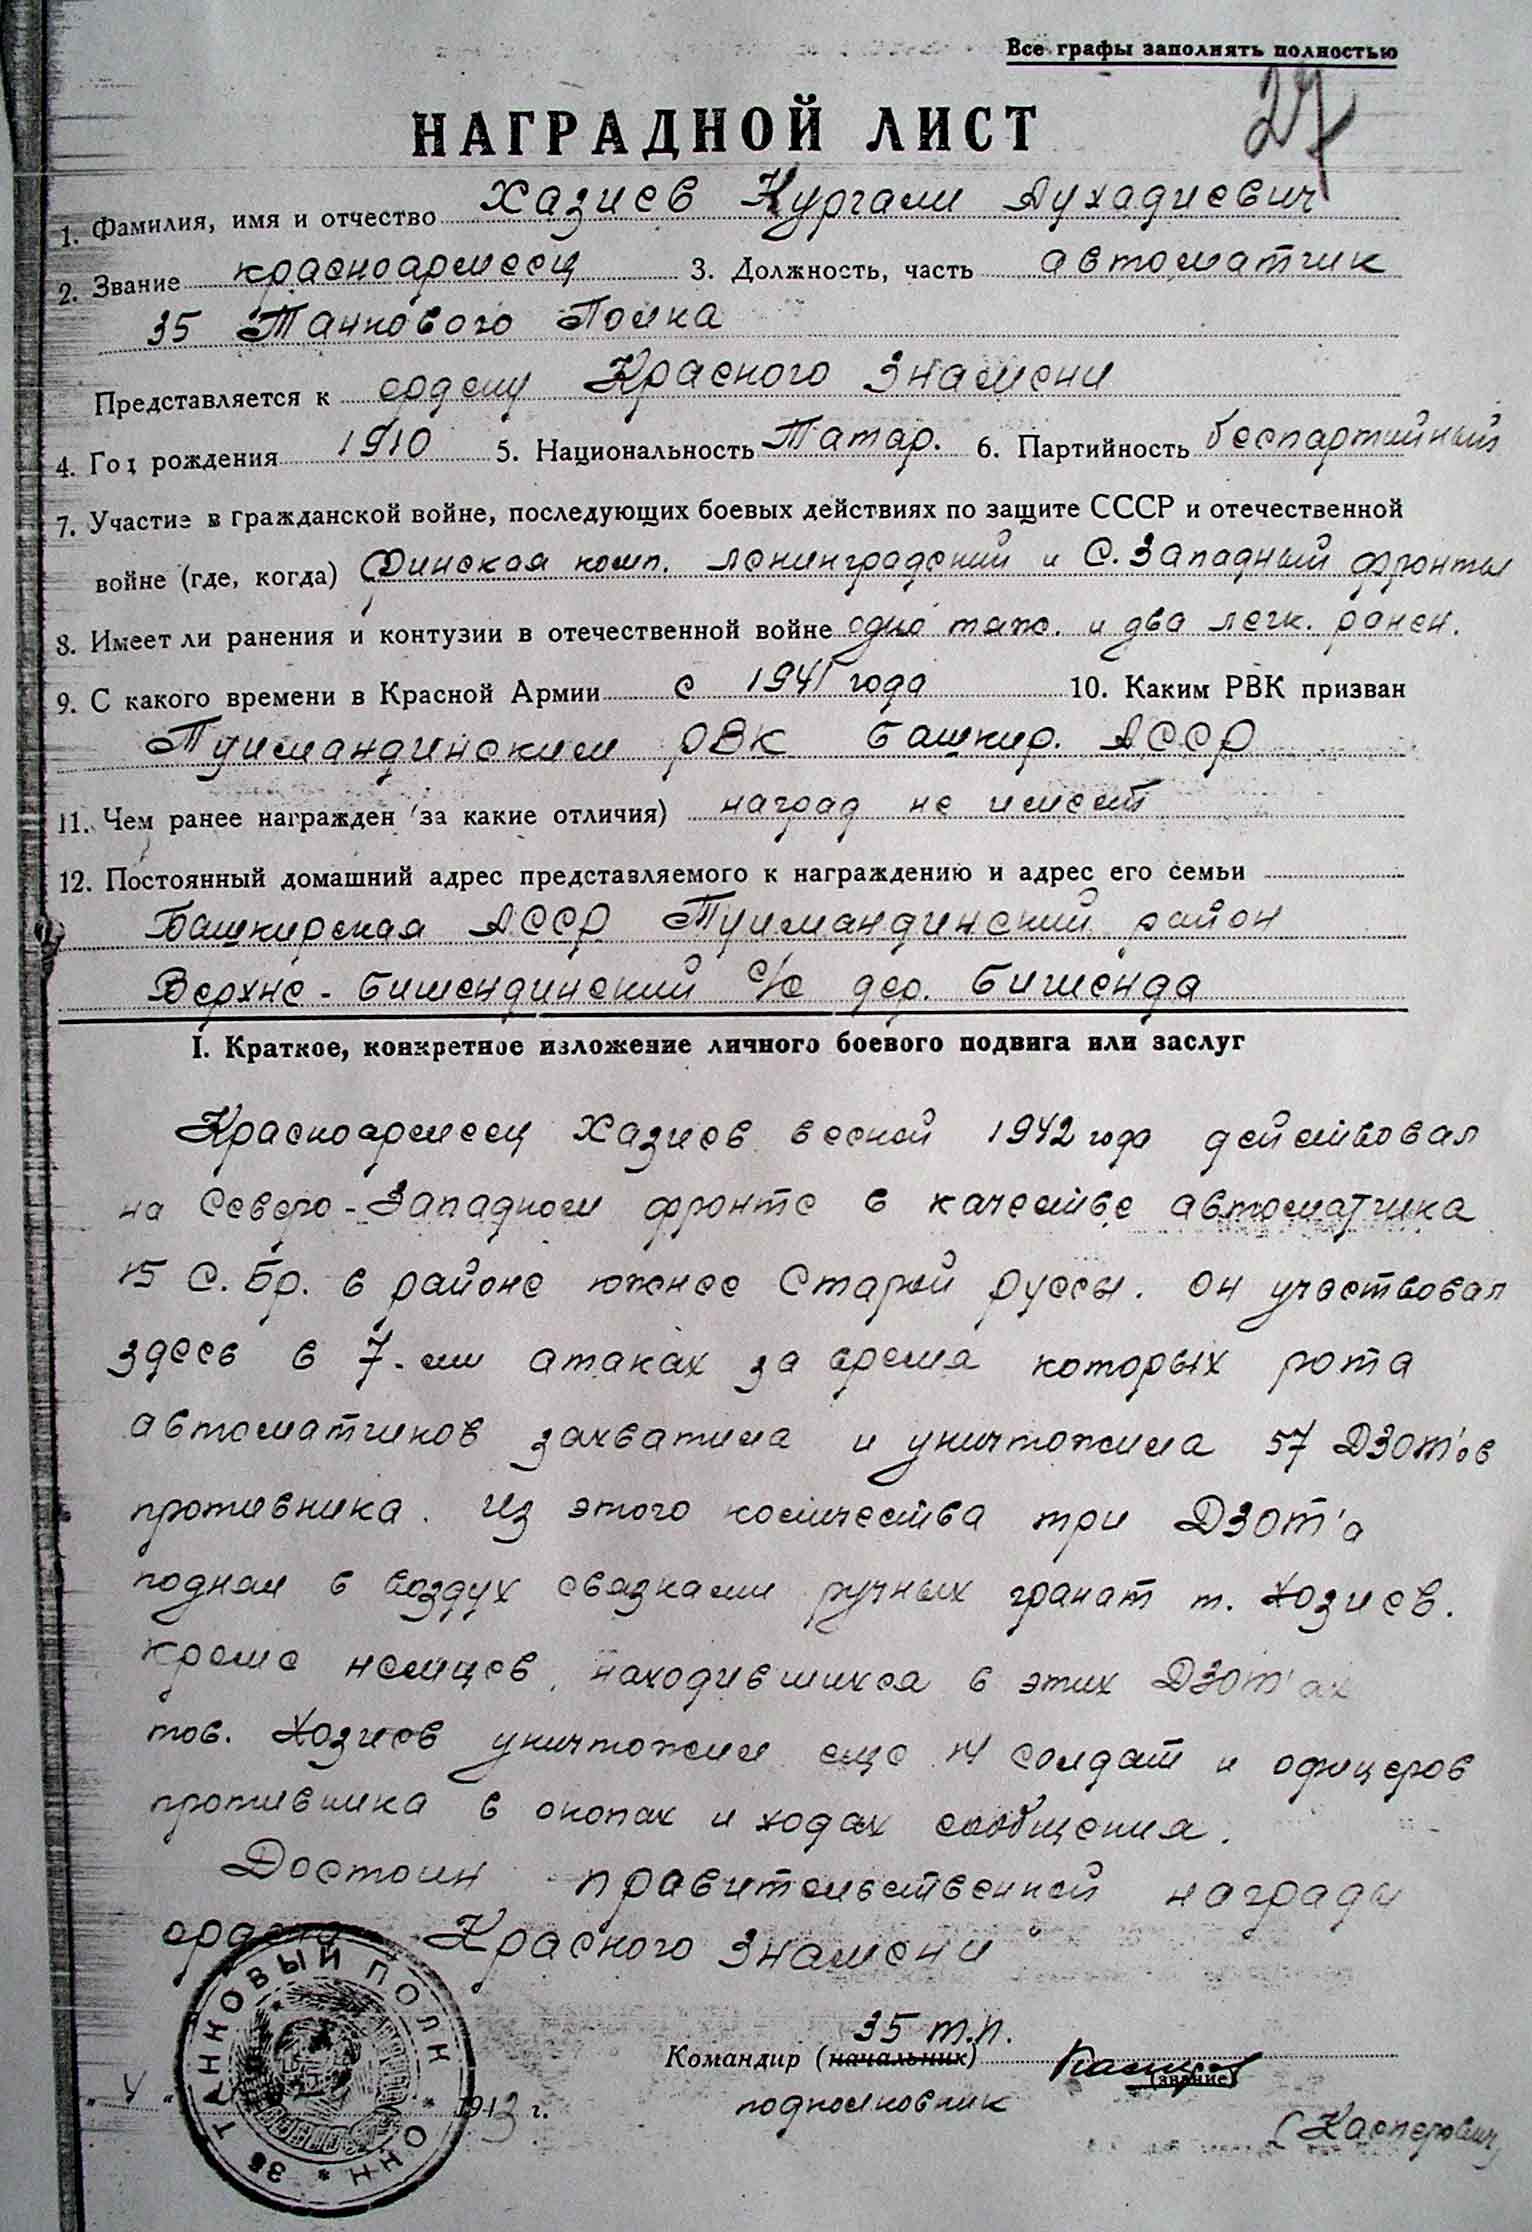 Все графы заполнять полностью
27
НАГРАДНОЙ ЛИСТ
1. Фамилия, имя и отчество Хазиев Нургали Духадиевич
2. Звание красноармеец 3. Должность, часть автоматчик
35 Танкового Полка
Представляется к ордену Красного Знамени
4. Год рождения 1910 5. Национальность Татар. 6. Партийность беспартийный
7. Участие в гражданской войне, последующих боевых действиях по защите СССР и отечественной
войне (где, когда) Финская комп. Ленинградский и С. Западный фронты
8. Имеет ли ранения и контузии в отечественной войне одно тяж. и два легк. ранен.
9. С какого времени в Красной Армии с 1941 года 10. Каким РВК призван
Туймандинским РВК Башкир. АССР
11. Чем ранее награжден (за какие отличия) наград не имеет
12. Постоянный домашний адрес представляемого к награждению и адрес его семьи
Башкирская АССР Туймандинский район
Верхне-Бишендинский с/с дер. Бишенда
I. Краткое, конкретное изложение личного боевого подвига или заслуг
Красноармеец Хазиев весной 1942 года действовал
на Северо-Западном фронте в качестве автоматчика
15 С. Бр. в районе южнее Старой Руссы. Он участвовал
здесь в 7-ми атаках за время которых рота
автоматчиков захватила и уничтожила 57 ДЗОТ'ов
противника. Из этого количества три ДЗОТ'а
поднял в воздух связками ручных гранат т. Хозиев.
Кроме немцев, находившихся в этих ДЗОТ'ах
тов. Хозиев уничтожил еще 14 солдат и офицеров
противника в окопах и ходах сообщения.
Достоин правительственной награды
ордена Красного Знамени
35 т.п.
Командир (начальник)
(звание)
подполковник
(Касперович)
"4" 1943 г.
35 ТАНКОВЫЙ ПОЛК * ОНН *